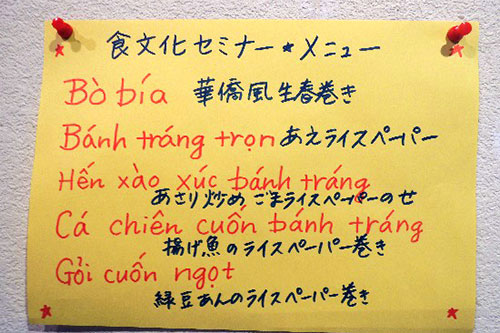 食文化セミナー★メニュー
Bò bía 華僑風生春巻き
Bánh tráng trọn あえライスペーパー
Hến xào xúc bánh tráng
あさり炒めごまライスペーパーのせ
Cá chiên cuốn bánh tráng
揚げ魚のライスペーパー巻き
Gỏi cuốn ngọt
緑豆あんのライスペーパー巻き